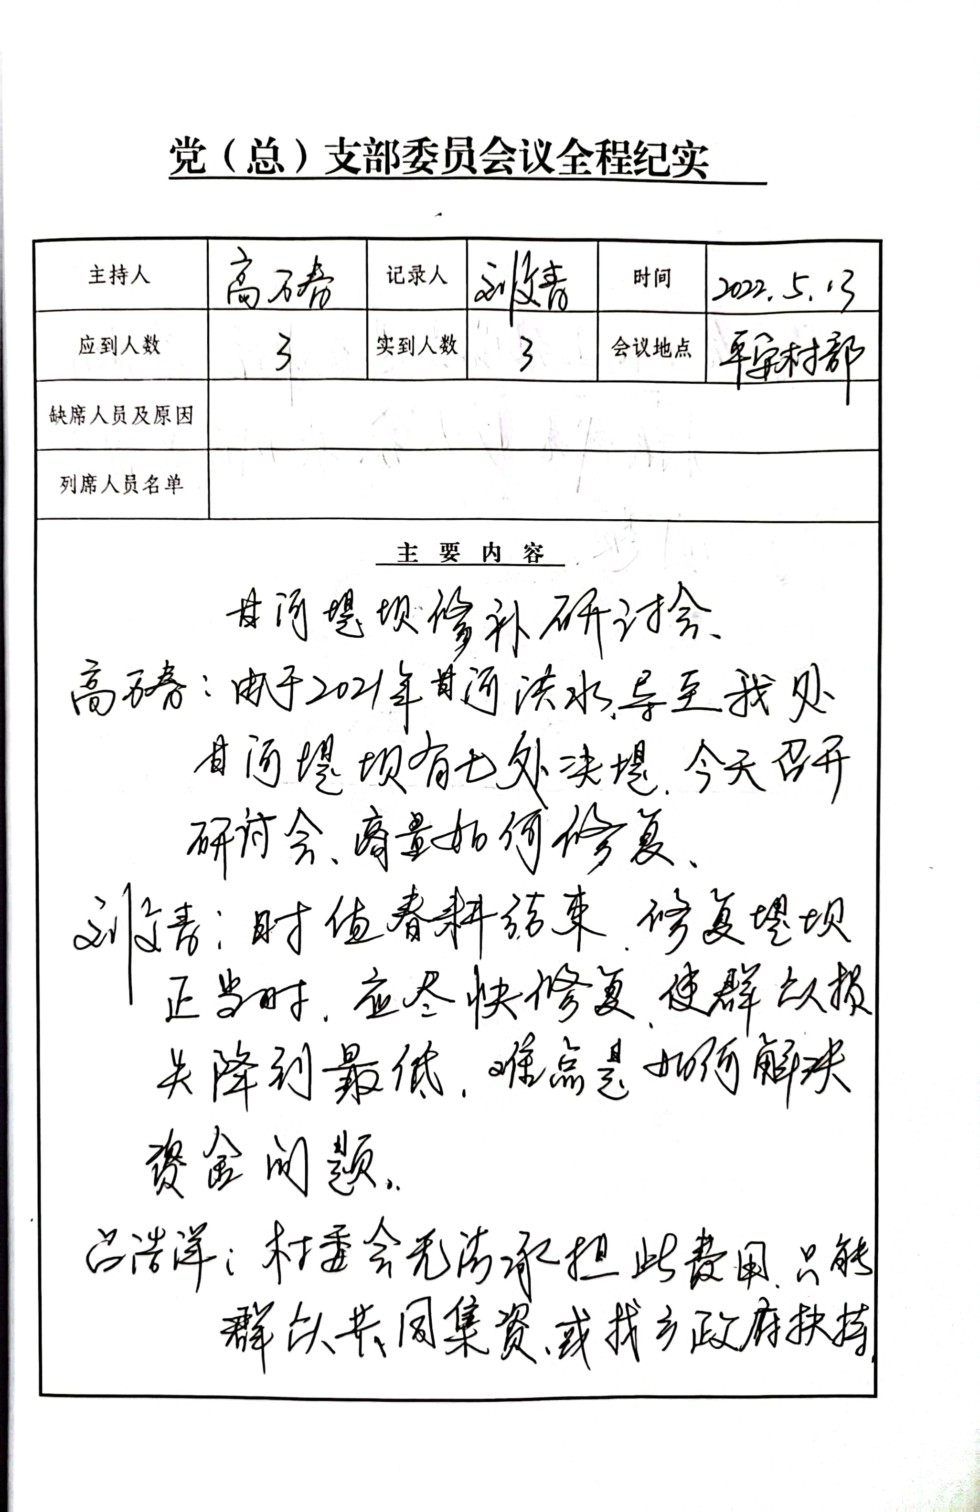 党（总）支部委员会议全程纪实
主持人 高万春 记录人 刘文青 时间 2022.5.13
应到人数 3 实到人数 3 会议地点 平安村部
缺席人员及原因
列席人员名单
主要内容
甘河堤坝修补研讨会、
高万春：由于2021年甘河洪水,导至我处
甘河堤坝有七处决堤,今天召开
研讨会、商量如何修复、
刘文青：时值春耕结束,修复堤坝
正当时,应尽快修复,使群众损
失降到最低,难点是如何解决
资金问题。
吕浩洋：村委会无法承担此费用,只能
群众共同集资,或找乡政府扶持,